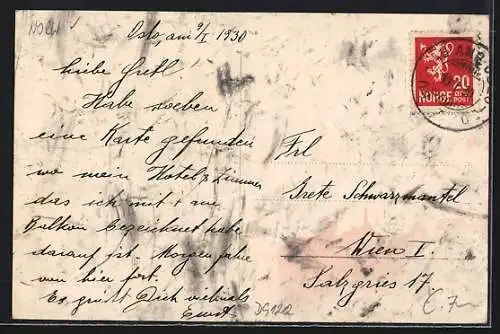 Oslo, am 9/I 1930
Liebe Gretl
Habe soeben
eine Karte gefunden
wo mein Hotel z Zimmer
das ich mit + am
Balkon bezeichnet habe
darauf ist. Morgen fahre
von hier fort.
Es grüßt Dich vielmals
Ernst
Frl
Grete Schwarzmantel
Wien I.
Salzgries 17
20
NORGE
POST
DG1212
€ 7-